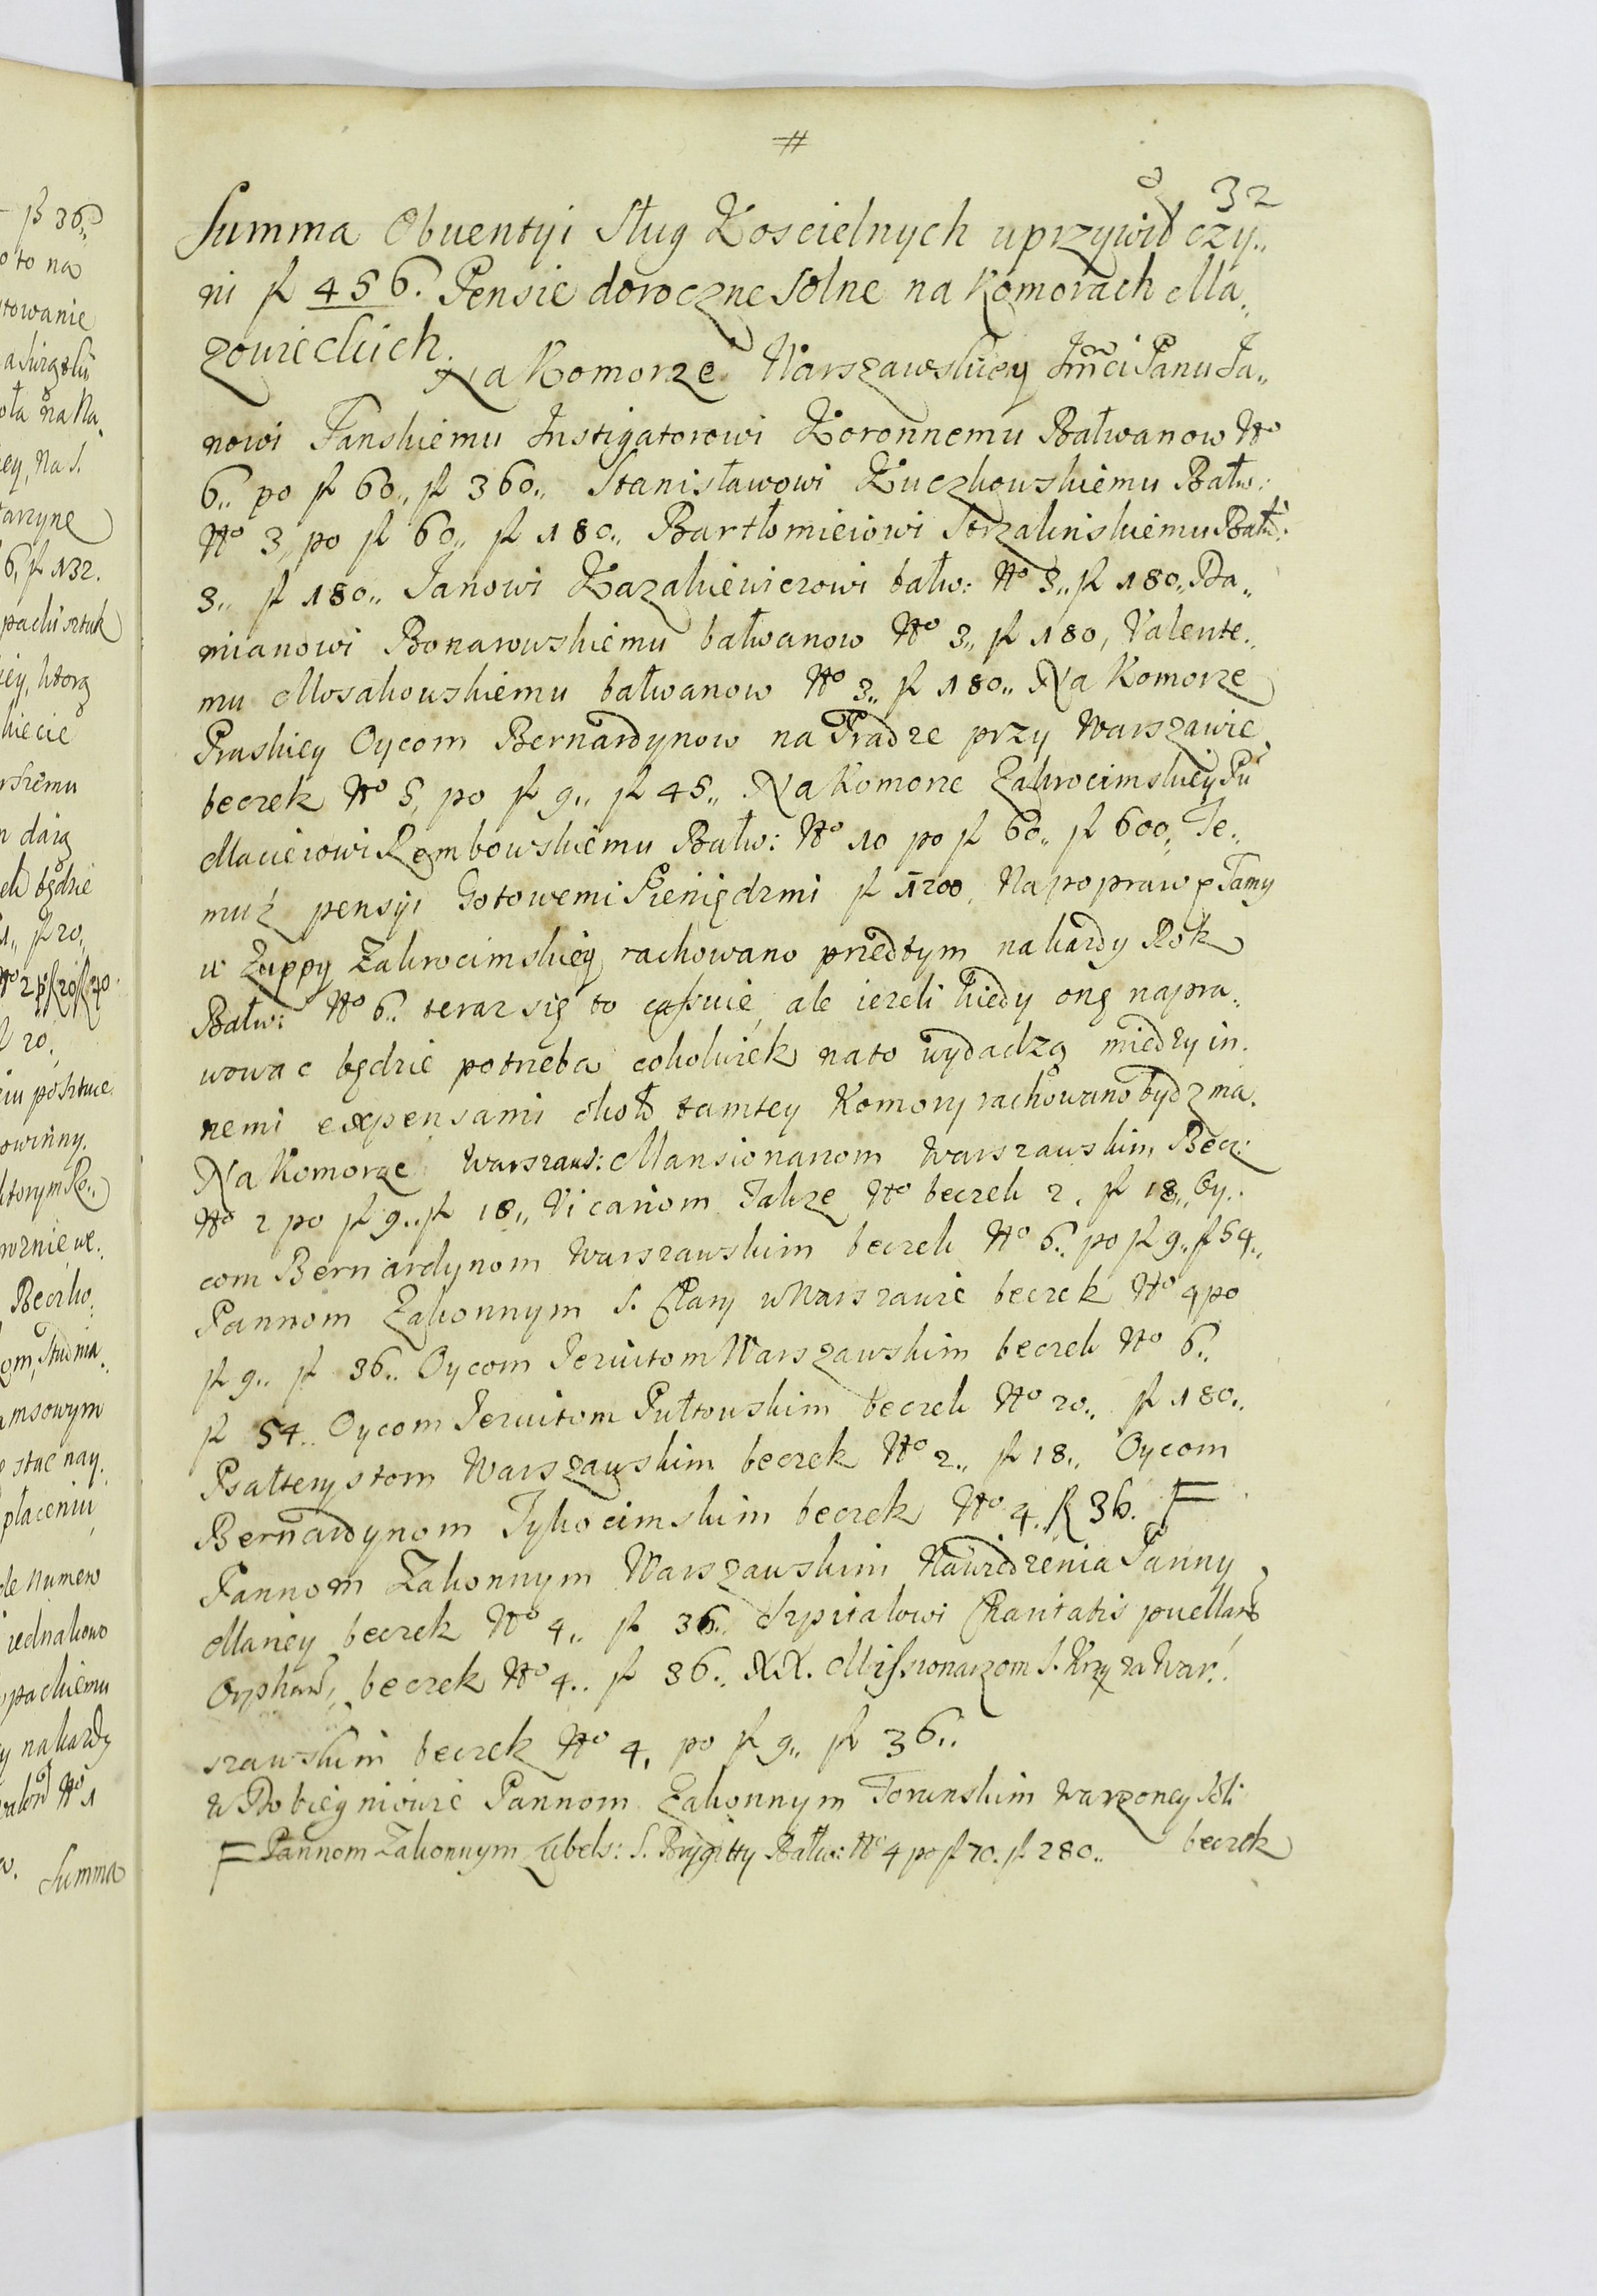 #
32
Summa Obuentyi Sług Koscielnych uprzywil czy„
ni fl 456. Pensie doroczne solne na Komorach Ma„
zowieckich.
Na Komorze Warszawskiey Jmci Panu Ja„
nowi Fanskiemu Instigatorowi Koronnemu Bałwanow No
6„ po fl 60„ fl 360„ Stanisławowi Kuczkowskiemu Bałw:
No 3„ po fl 60„ fl 180„ Bartłomieiowi Strzalinskiemu Bałw:
3„ fl 180„ Janowi Kazakiewiczowi bałw: No 3„ fl 180„ Da„
mianowi Bonarowskiemu bałwanow No 3„ fl 180, Valente„
mu Mosakowskiemu bałwanow No 3„ fl 180„ Na Komorze
Praskiey Oycom Bernardynow na Pradze przy Warszawie
beczek No 5, po fl 9„ fl 45„ Na Komorze Zakrocimskiey Pu
Macieiowi Rembowskiemu Bałw: No 10 po fl 60„ fl 600„ Te„
muż pensyi Gotowemi Pieniędzmi fl 1200, Na poprawę Tamy
w Zuppy Zakrocimskiey rachowano przedtym na kazdy Rok
Bałw: No 6„ teraz się to cassuie, ale iezeli kiedy onę napra„
wowac będzie potrzeba cokolwiek na to wydadzą miedzy in„
nemi expensami około tamtey Komory rachowano bydz ma.
Na Komorze Warszaws: Mansionarom Warszawskim Becz:
No 2 po fl 9„ fl 18„ Vicariom Takze No beczek 2. fl 18„ Oy„
com Bernardynom Warszawskim beczek No 6„ po fl 9„ fl 54„
Pannom Zakonnym S. Clary w Warszawie beczek No 4 po
fl 9„ fl 36„ Oycom Jezuitom Warszawskim beczek No 6„
fl 54„ Oycom Jezuitom Pułtowskim beczek No 20„ fl 180„
Psałterystom Warszawskim beczek No 2„ fl 18„ Oycom
Bernardynom Tykocimskim beczek No 4. fl 36. F
Pannom Zakonnym Warszawskim Nawiedzenia Panny
Mariey beczek No 4„ fl 36„ Szpitalowi Charitatis puellarum
Orphanarum, beczek No 4„ fl 36„ XX. Missionarzom S. Krzyza War„
szawskim beczek No 4, po fl 9„ fl 36„
w Dobiegniowie Pannom Zakonnym Torunskim warzoney Soli
F Pannom Zakonnym Lubels: S. Brygitty Bałw: No 4 po fl 70. fl 280„
beczek